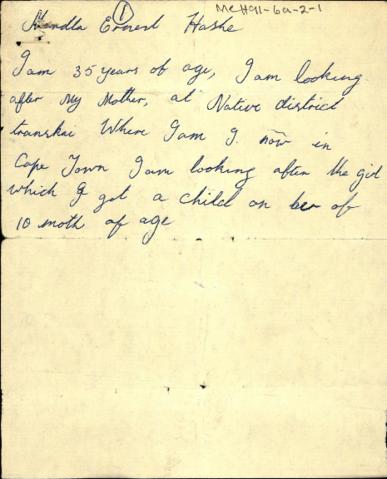 ① MCH91-6a-2-1
Mendla Ernest Hashe
I am 35 years of age, I am looking
after My Mother, at Native district
transkai Where I am I. now in
Cape Town I am looking after the girl
which I got a child on her of
10 moth of age